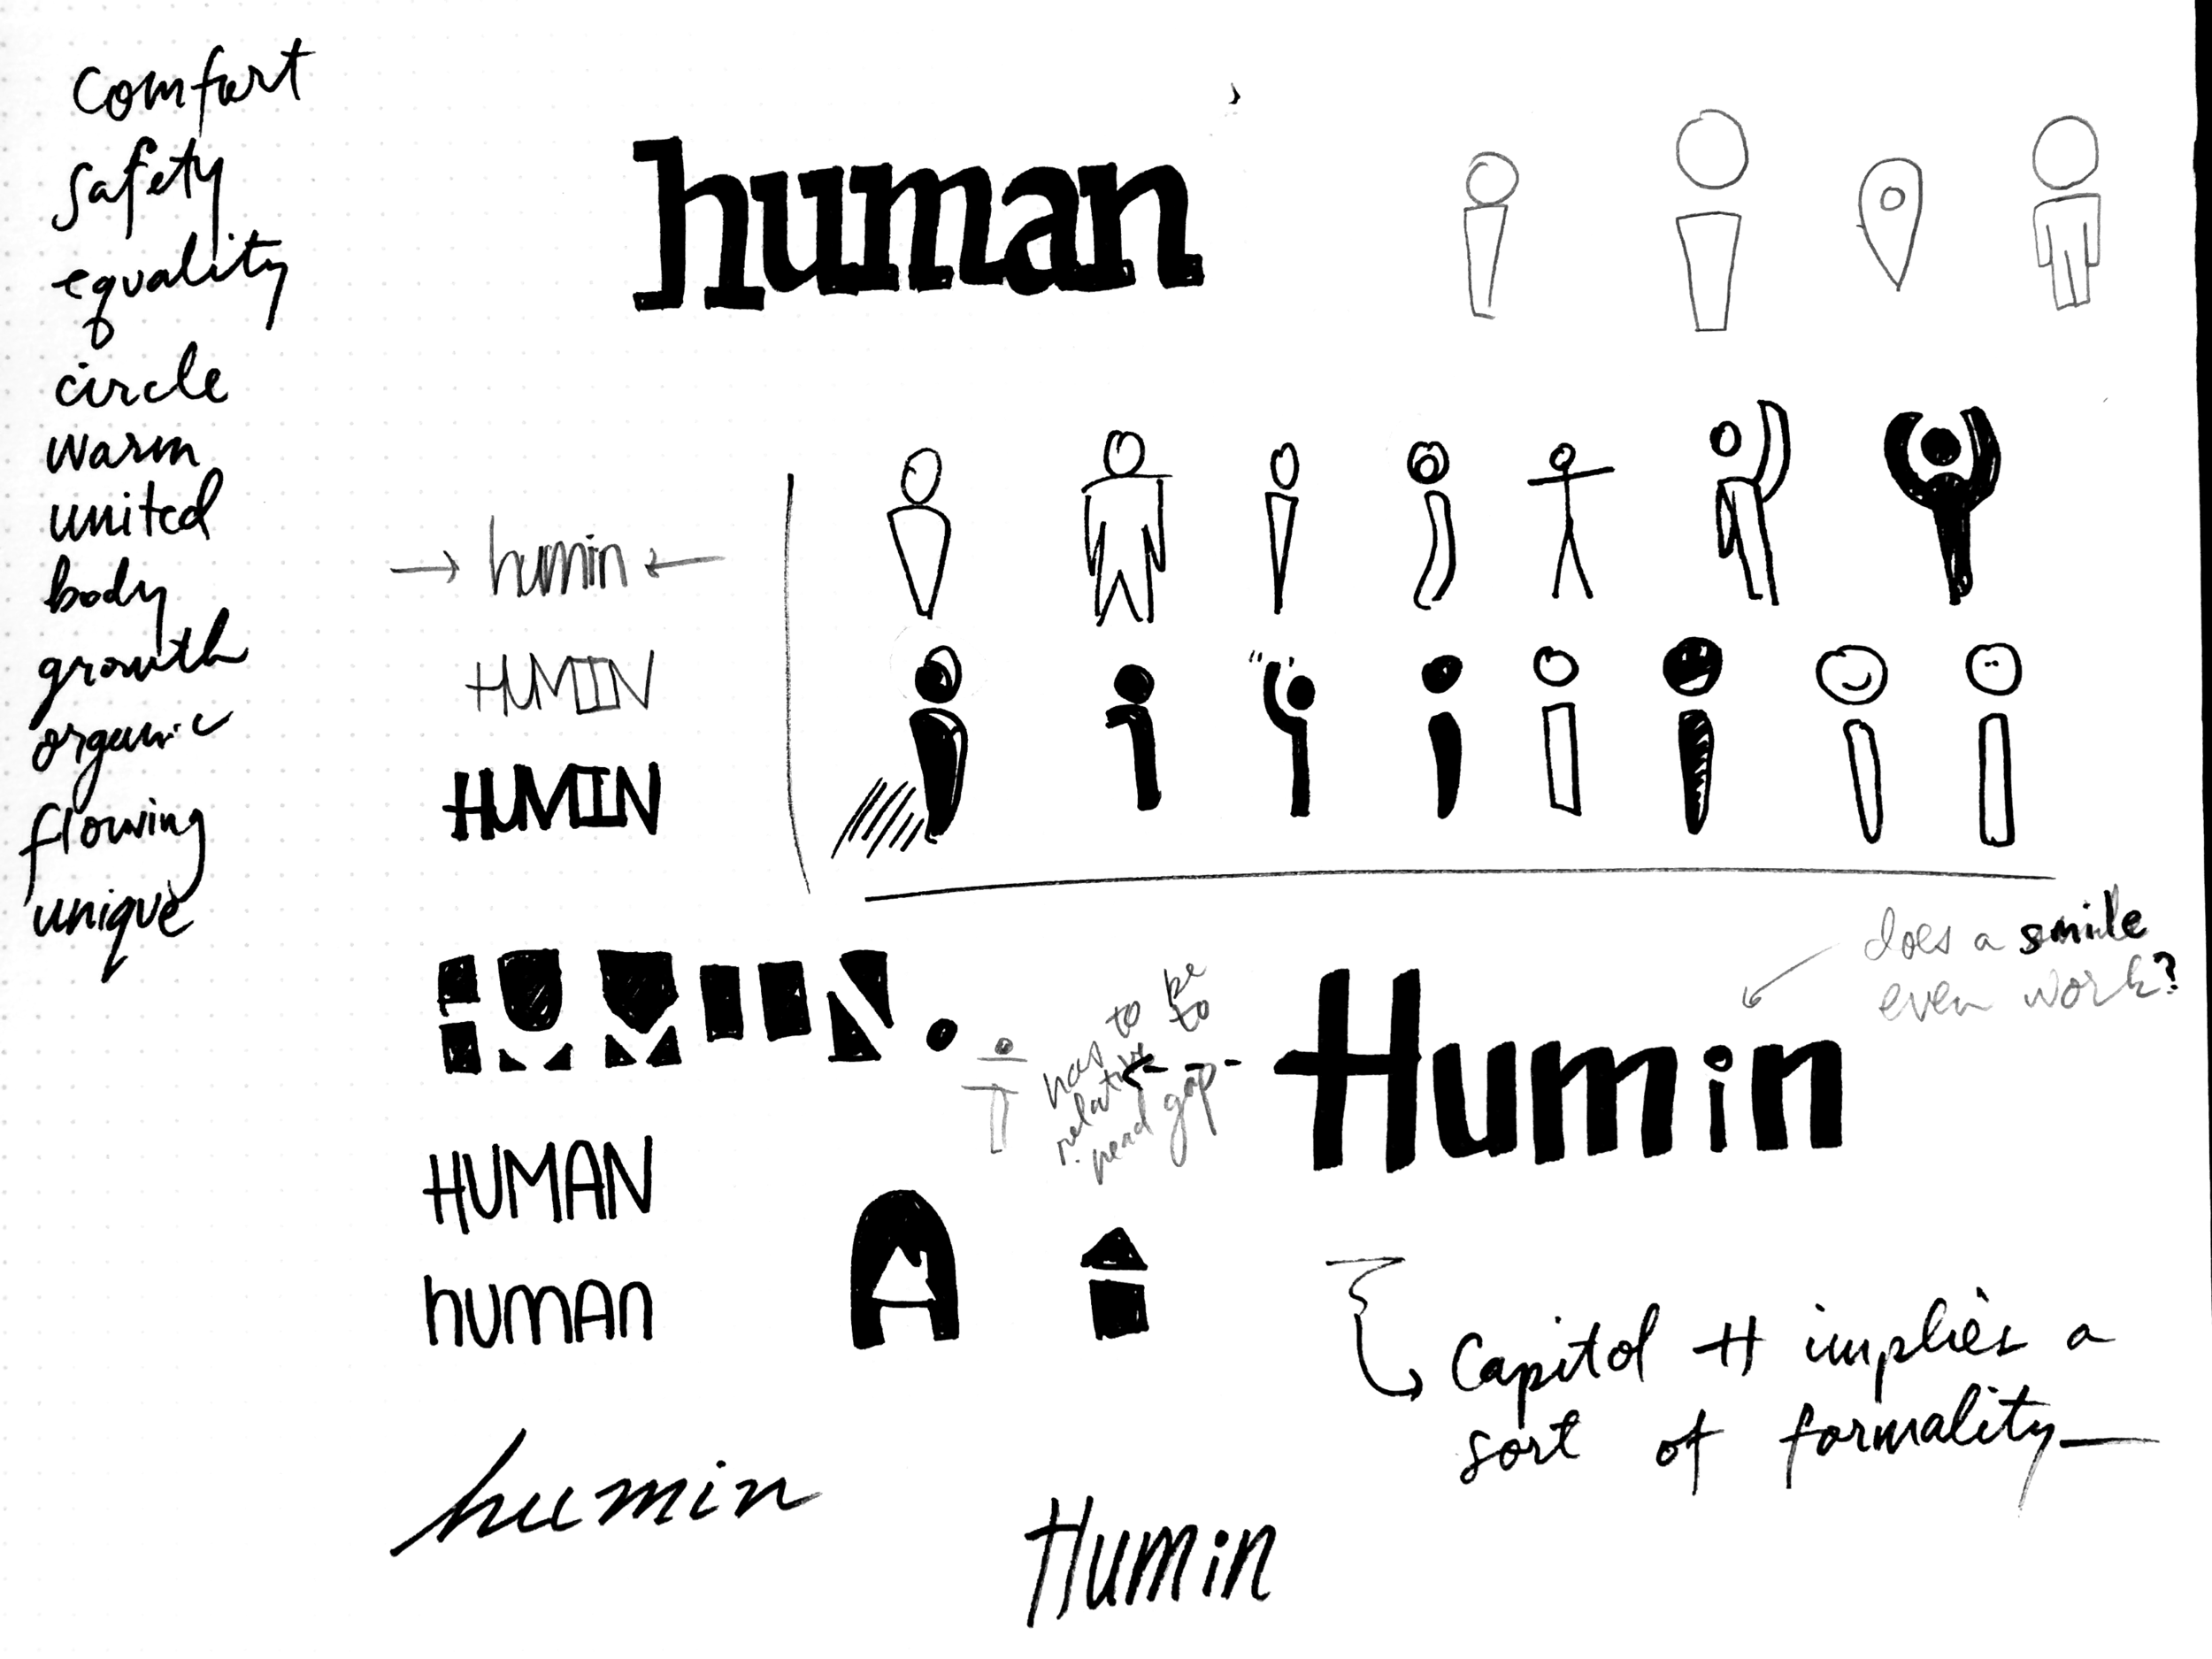 comfort
safety
equality
circle
warm
united
body
growth
organic
flowing
unique
human
humin
HUMIN
HUMIN
HUMIN
has to be
relative to
head gap
does a smile
even work?
Humin
HUMAN
humAn
A
Capitol H implies a
sort of formality—
humin
Humin